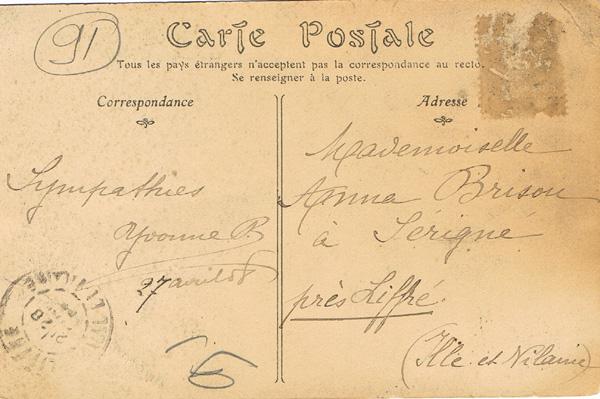 91
Carte Postale
Tous les pays étrangers n'acceptent pas la correspondance au recto.
Se renseigner à la poste.
Correspondance
Sympathies
Yvonne B
27 avril 08
Adresse
Mademoiselle
Anna Brison
à Sérigné
près Liffré
(Ille et Vilaine)